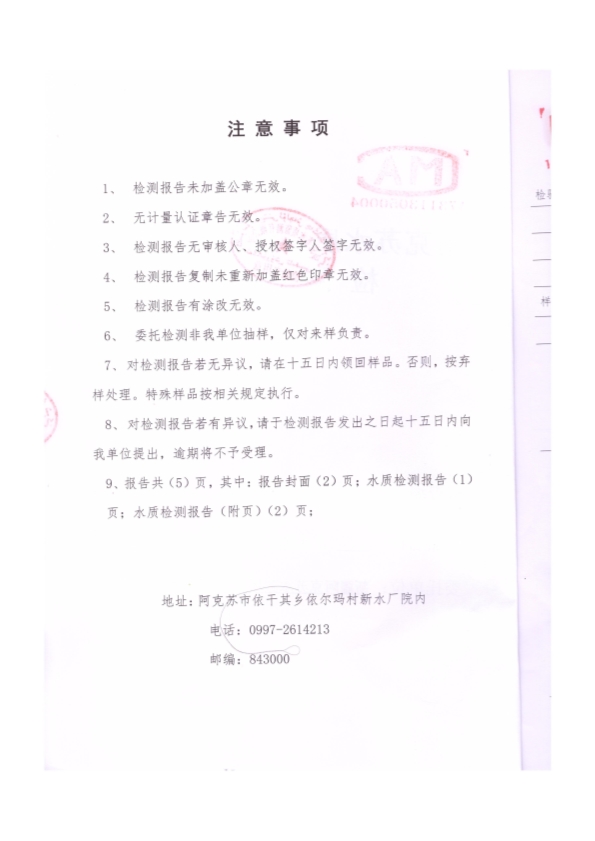 注意事项
1、 检测报告未加盖公章无效。
2、 无计量认证章告无效。
3、 检测报告无审核人、授权签字人签字无效。
4、 检测报告复制未重新加盖红色印章无效。
5、 检测报告有涂改无效。
6、 委托检测非我单位抽样，仅对来样负责。
7、对检测报告若无异议，请在十五日内领回样品。否则，按弃
样处理。特殊样品按相关规定执行。
8、对检测报告若有异议，请于检测报告发出之日起十五日内向
我单位提出，逾期将不予受理。
9、报告共（5）页，其中：报告封面（2）页；水质检测报告（1）
页；水质检测报告（附页）（2）页；
地址：阿克苏市依干其乡依尔玛村新水厂院内
电话：0997-2614213
邮编：843000
MA
样